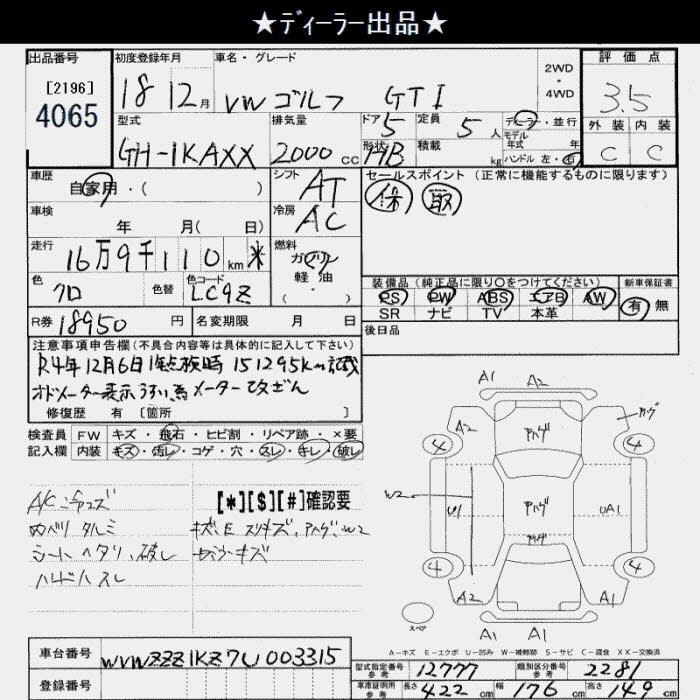 ★ディーラー出品★
出品番号 初度登録年月 車名・グレード 2WD・4WD 評価点
[2196] 4065 18 12月 VW ゴルフ GTI 3.5
型式 排気量 ドア 5 定員 5人 ディーラー・並行 外装 内装
GH-1KAXX 2000cc 形状 HB 積載 kg モデル年式 年 ハンドル 左・右 C C
車歴 自家用・( ) シフト AT セールスポイント(正常に機能するものに限ります)
車検 年 月( 日) 冷房 AC 保 取
走行 16万9千110km * 燃料 ガソリン・軽油・( )
色 クロ 色替 色コード LC9Z
装備品(純正品に限り○をつけてください) 新車保証書
PS PW ABS エアB AW 有 無
SR ナビ TV 本革
R券 18950円 名変期限 月 日 後日品
注意事項申告欄(不具合内容等は具体的に記入して下さい)
R4年12月6日 1年点検時 151295km記載
オドメーター表示うすい為メーター改ざん
修復歴 有 [箇所 ]
検査員 FW キズ・飛石・ヒビ割・リペア跡・×要
記入欄 内装 キズ・汚レ・コゲ・穴・スレ・キレ・破レ
[*][$][#]確認要
A/C
内ベリ タルミ
シート ヘタリ、破レ
ハンドル スレ
A1 A2
A2 アハゲ
4 4
W2 U1 アハゲ UA1
アハゲ
4 4
A2 A1
スペア A1 A1
A-キズ E-エクボ U-凹み W-補修跡 S-サビ C-腐食 XX-交換済
車台番号 WVWZZZ1KZ7U003315
登録番号
型式指定番号 参考 12777 類別区分番号 参考 2281
車庫証明用 参考 長さ 422cm 幅 176cm 高さ 149cm